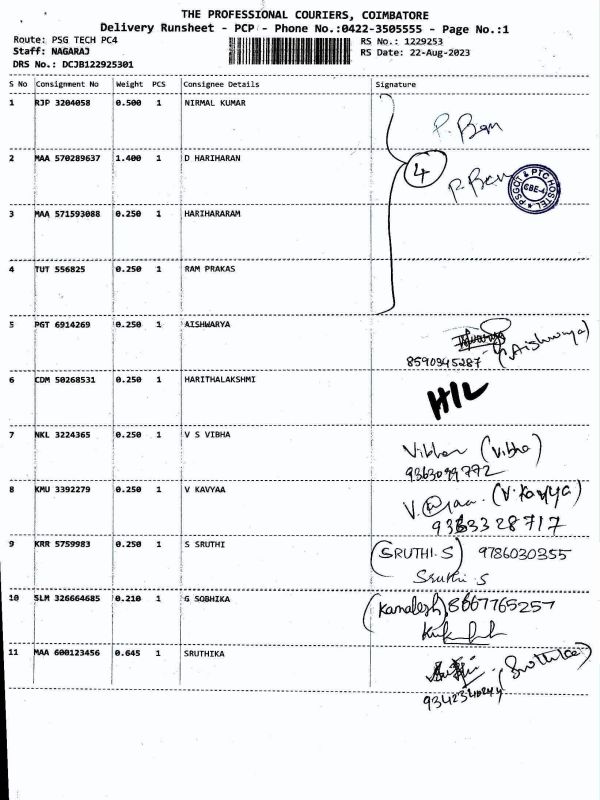 THE PROFESSIONAL COURIERS, COIMBATORE
Delivery Runsheet - PCP - Phone No.:0422-3505555 - Page No.:1
Route: PSG TECH PC4 RS No.: 1229253
Staff: NAGARAJ RS Date: 22-Aug-2023
DRS No.: DCJB122925301
S No Consignment No Weight PCS Consignee Details Signature
1 RJP 3204058 0.500 1 NIRMAL KUMAR
P. Ben
2 MAA 570289637 1.400 1 D HARIHARAN
4 P. Ben
PSGCT & PTC HOSTEL CBE-4
3 MAA 571593088 0.250 1 HARIHARARAM
4 TUT 556825 0.250 1 RAM PRAKAS
5 PGT 6914269 0.250 1 AISHWARYA
(Aishwarya)
8590345287
6 CDM 50268531 0.250 1 HARITHALAKSHMI
H/L
7 NKL 3224365 0.250 1 V S VIBHA
(Vibha)
9363099772
8 KMU 3392279 0.250 1 V KAVYAA
(V.Kavya)
9363328717
9 KRR 5759983 0.250 1 S SRUTHI
(SRUTHI.S) 9786030355
Sruthi.S
10 SLM 326664685 0.210 1 G SOBHIKA
(Kamalesh) 8667765257
11 MAA 600123456 0.645 1 SRUTHIKA
(Sruthika)